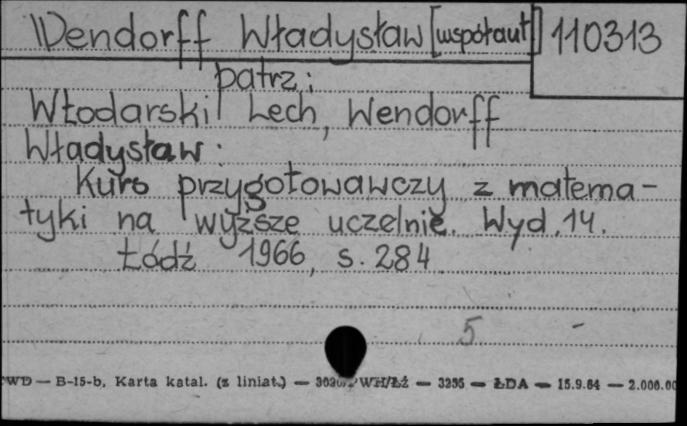 Wendorff Władysław [współaut.] 110313
patrz:
Włodarski Lech, Wendorff
Władysław:
Kurs przygotowawczy z matema-
tyki na wyższe uczelnie. Wyd. 14.
Łódź 1966, s. 284
5 -
PWD — B-15-b, Karta katal. (z liniat.) — WH/Łź — 3295 — ŁDA — 15.9.64 — 2.000.00